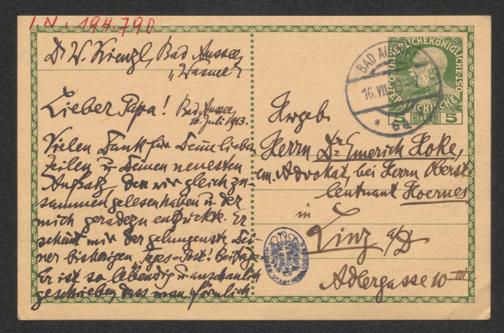 I.N. 194.790
Dr W. Kienzl, Bad Aussee,
Lieber Papa! Bad Aussee,
Juli 1913.
Vielen Dank für Deine lieben
Zeilen u. Deinen neuesten
Aufsatz, den wir gleich zu-
sammen gelesen haben u. der
mich geradezu entzückte. Er
scheint mir der gelungenste Dei-
ner bisherigen
Er ist so lebendig u. anschaulich
geschrieben, dass man förmlich
BAD AUSSEE
16. VII
KAISERLICHE KÖNIGLICHE
5 5
Herrn Dr. Emerich Hoke,
em. Advokat, bei Herrn Oberst-
leutnant Hoernes
in
Linz a/D
Adlergasse 10